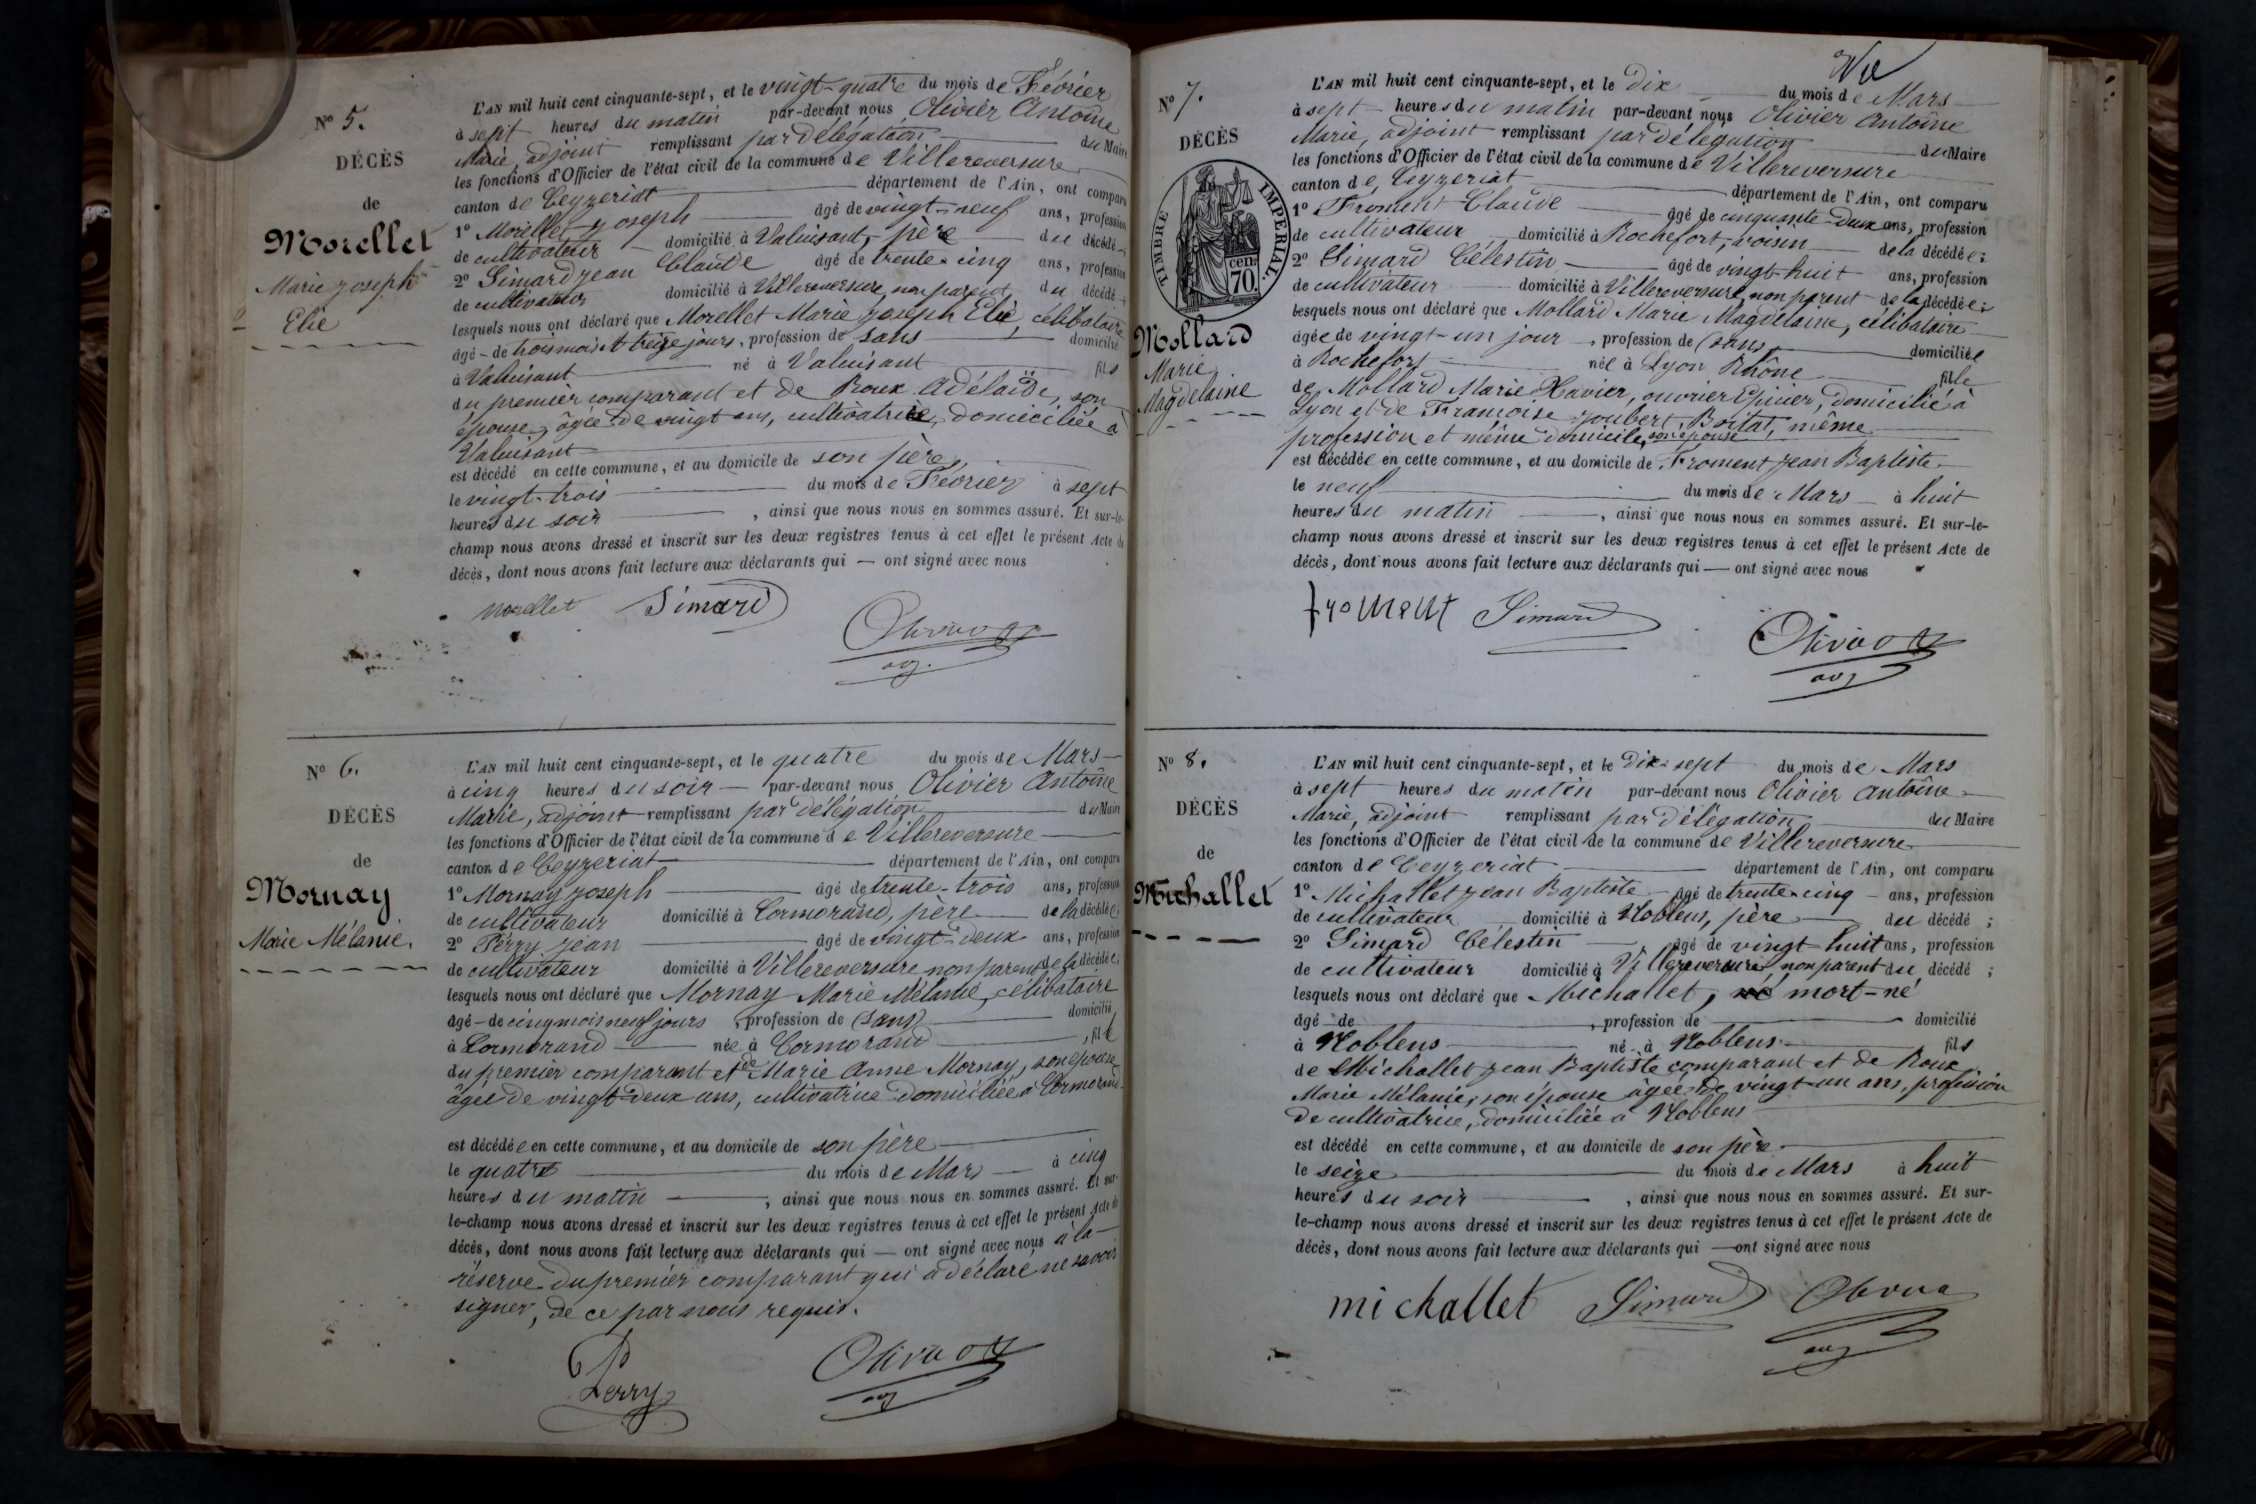 N° 5.
DÉCÈS
de
Morellet
Marie Joseph
Elie
L'AN mil huit cent cinquante-sept, et le vingt-quatre du mois de Février
à sept heures du matin par-devant nous Olivier Antoine
Marie, adjoint remplissant par délégation du Maire
les fonctions d'Officier de l'état civil de la commune de Villereversure
canton de Ceyzeriat département de l'Ain, ont comparu
1° Morellet Joseph âgé de vingt-neuf ans, profession
de cultivateur domicilié à Valuisant, père du décédé
2° Simard Jean Claude âgé de trente-cinq ans, profession
de cultivateur domicilié à Villereversure, non parent du décédé
lesquels nous ont déclaré que Morellet Marie Joseph Elie, célibataire
âgé de trois mois et treize jours, profession de sans domicilié
à Valuisant né à Valuisant fils
du premier comparant et de Roux Adélaïde, son
épouse, âgée de vingt ans, cultivatrice, domiciliée à
Valuisant
est décédé en cette commune, et au domicile de son père,
le vingt-trois du mois de Février à sept
heures du soir, ainsi que nous nous en sommes assuré. Et sur-le-
champ nous avons dressé et inscrit sur les deux registres tenus à cet effet le présent Acte de
décès, dont nous avons fait lecture aux déclarants qui — ont signé avec nous
Morellet Simard
Olivier
adj.
N° 6.
DÉCÈS
de
Mornay
Marie Mélanie.
L'AN mil huit cent cinquante-sept, et le quatre du mois de Mars
à cinq heures du soir par-devant nous Olivier Antoine
Marie, adjoint remplissant par délégation du Maire
les fonctions d'Officier de l'état civil de la commune de Villereversure
canton de Ceyzeriat département de l'Ain, ont comparu
1° Mornay Joseph âgé de trente-trois ans, profession
de cultivateur domicilié à Cormorand, père de la décédée;
2° Perry Jean âgé de vingt-deux ans, profession
de cultivateur domicilié à Villereversure non parent de la décédée;
lesquels nous ont déclaré que Mornay Marie Mélanie, célibataire
âgé de cinq mois neuf jours, profession de (sans) domicilié
à Cormorand née à Cormorand, fille
du premier comparant et de Marie Anne Mornay, son épouse
âgée de vingt-deux ans, cultivatrice domiciliée à Cormorand
est décédée en cette commune, et au domicile de son père
le quatre du mois de Mars à cinq
heures du matin, ainsi que nous nous en sommes assuré. Et sur-
le-champ nous avons dressé et inscrit sur les deux registres tenus à cet effet le présent Acte de
décès, dont nous avons fait lecture aux déclarants qui — ont signé avec nous à la
réserve du premier comparant qui a déclaré ne savoir
signer, de ce par nous requis.
Perry
Olivier
adj
N° 7.
DÉCÈS
TIMBRE IMPÉRIAL.
cen.
70.
Mollard
Marie
Magdelaine
L'AN mil huit cent cinquante-sept, et le dix du mois de Mars
à sept heures du matin par-devant nous Olivier Antoine
Marie, adjoint remplissant par délégation du Maire
les fonctions d'Officier de l'état civil de la commune de Villereversure
canton de Ceyzeriat département de l'Ain, ont comparu
1° Froment Claude âgé de cinquante-deux ans, profession
de cultivateur domicilié à Rochefort, voisin de la décédée;
2° Simard Célestin âgé de vingt-huit ans, profession
de cultivateur domicilié à Villereversure, non parent de la décédée;
lesquels nous ont déclaré que Mollard Marie Magdelaine, célibataire
âgée de vingt-un jour, profession de (sans) domiciliée
à Rochefort née à Lyon Rhône fille
de Mollard Marie Xavier, ouvrier Epicier, domicilié à
Lyon et de Françoise Joubert, Boitat, même
profession et même domicile, son épouse
est décédée en cette commune, et au domicile de Froment Jean Baptiste
le neuf du mois de Mars à huit
heures du matin, ainsi que nous nous en sommes assuré. Et sur-le-
champ nous avons dressé et inscrit sur les deux registres tenus à cet effet le présent Acte de
décès, dont nous avons fait lecture aux déclarants qui — ont signé avec nous
froment Simard
Olivier
adj
N° 8.
DÉCÈS
de
Michallet
L'AN mil huit cent cinquante-sept, et le dix-sept du mois de Mars
à sept heures du matin par-devant nous Olivier Antoine
Marie, adjoint remplissant par délégation du Maire
les fonctions d'Officier de l'état civil de la commune de Villereversure
canton de Ceyzeriat département de l'Ain, ont comparu
1° Michallet Jean Baptiste âgé de trente-cinq ans, profession
de cultivateur domicilié à Noblens, père du décédé;
2° Simard Célestin âgé de vingt-huit ans, profession
de cultivateur domicilié à Villereversure non parent du décédé;
lesquels nous ont déclaré que Michallet, né mort-né
âgé de, profession de domicilié
à Noblens né à Noblens fils
de Michallet Jean Baptiste comparant et de Roux
Marie Mélanie, son épouse âgée de vingt-un ans, profession
de cultivatrice, domiciliée à Noblens
est décédé en cette commune, et au domicile de son père
le seize du mois de Mars à huit
heures du soir, ainsi que nous nous en sommes assuré. Et sur-
le-champ nous avons dressé et inscrit sur les deux registres tenus à cet effet le présent Acte de
décès, dont nous avons fait lecture aux déclarants qui — ont signé avec nous
michallet Simard Olivier
adj